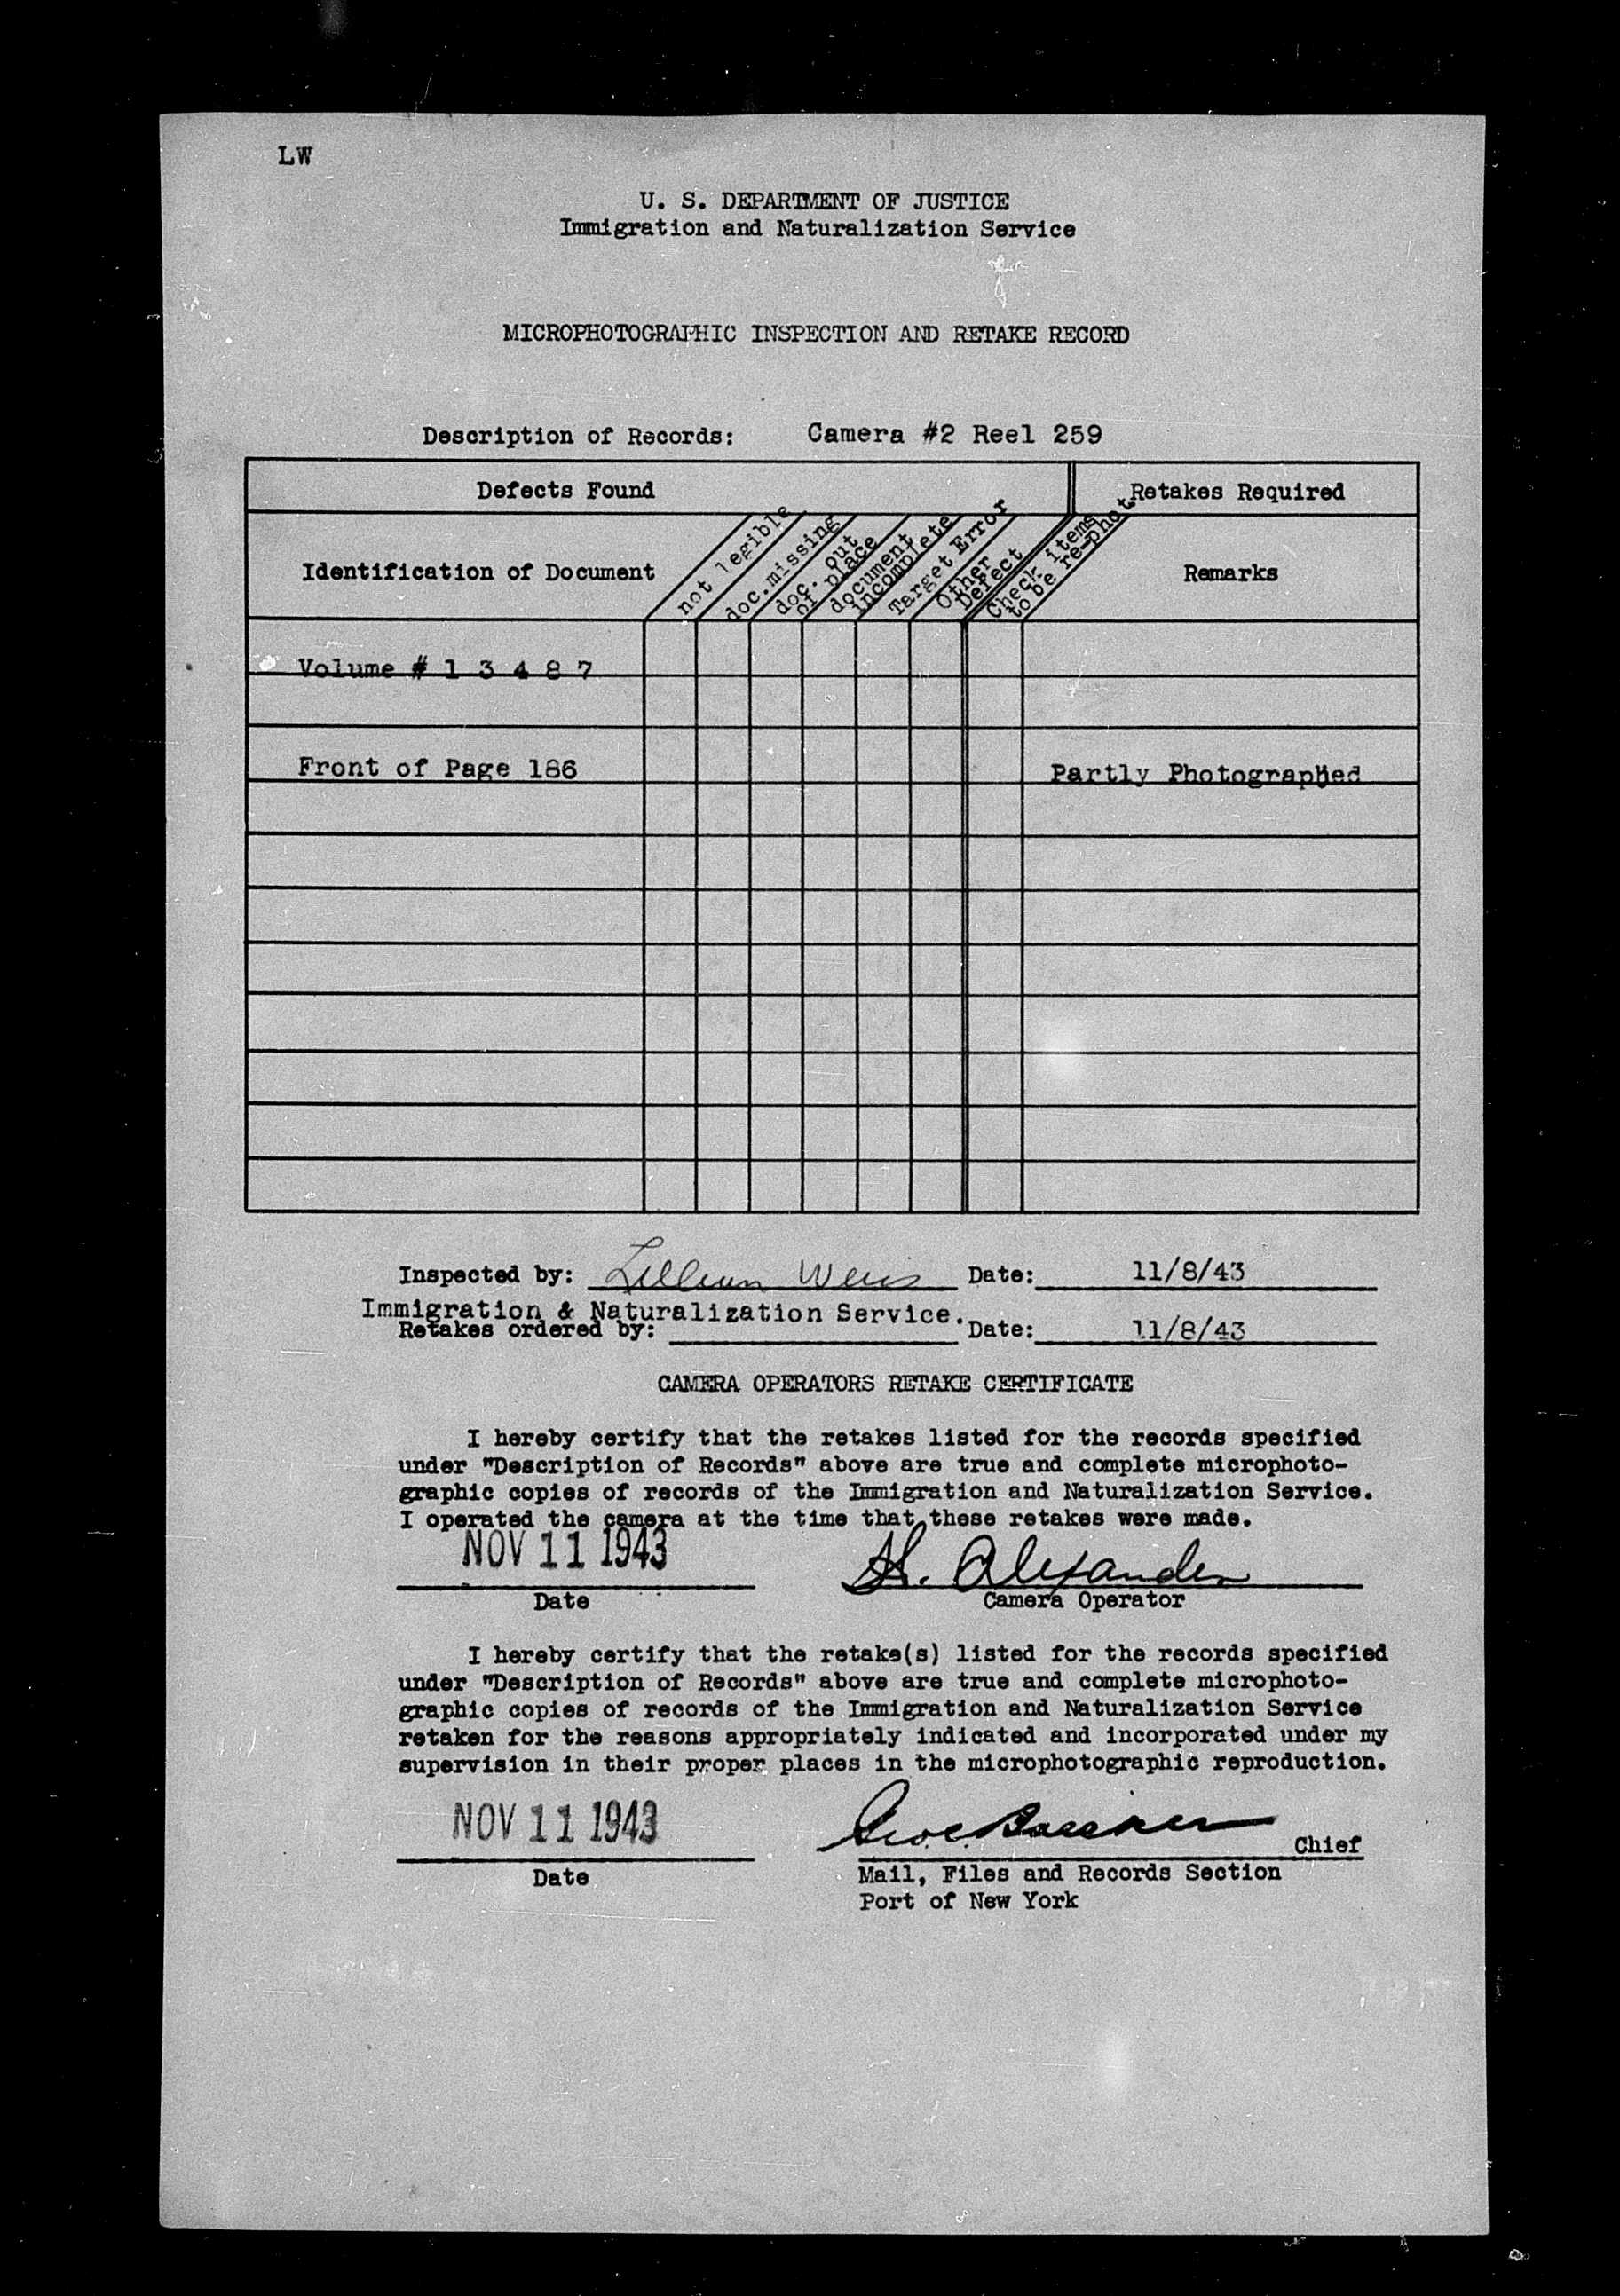 LW
U. S. DEPARTMENT OF JUSTICE
Immigration and Naturalization Service
MICROPHOTOGRAPHIC INSPECTION AND RETAKE RECORD
Description of Records: Camera #2 Reel 259
Defects Found
Retakes Required
Identification of Document
not legible
doc.missing
doc. out
of place
document
incomplete
Target Error
Other
Defect
Check items
to be re-phot.
Remarks
Volume # 1 3 4 8 7
Front of Page 186 Partly Photographed
Inspected by: Lillian Weis Date: 11/8/43
Immigration & Naturalization Service.
Retakes ordered by: Date: 11/8/43
CAMERA OPERATORS RETAKE CERTIFICATE
I hereby certify that the retakes listed for the records specified
under "Description of Records" above are true and complete microphoto-
graphic copies of records of the Immigration and Naturalization Service.
I operated the camera at the time that these retakes were made.
NOV 11 1943 H. Alexander
Date Camera Operator
I hereby certify that the retake(s) listed for the records specified
under "Description of Records" above are true and complete microphoto-
graphic copies of records of the Immigration and Naturalization Service
retaken for the reasons appropriately indicated and incorporated under my
supervision in their proper places in the microphotographic reproduction.
NOV 11 1943
Chief
Date Mail, Files and Records Section
Port of New York